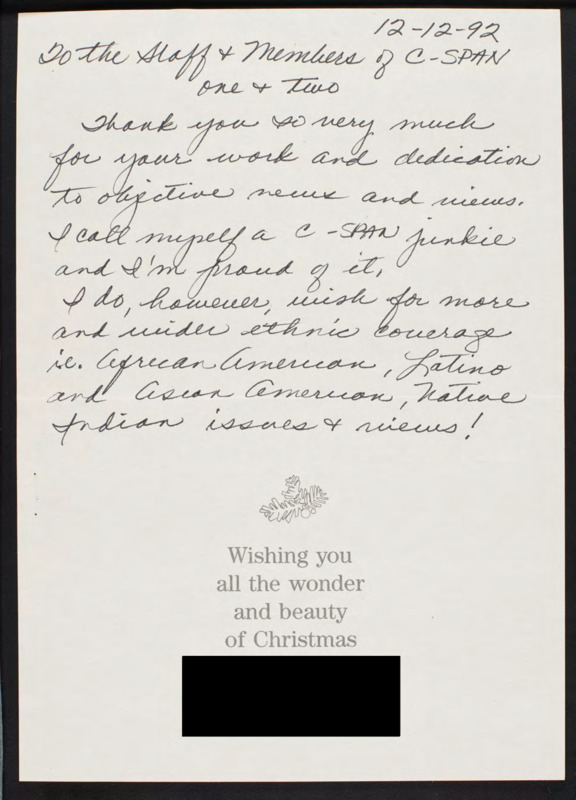 12-12-92
To the Staff & Members of C-SPAN
one & two
Thank you so very much
for your work and dedication
to objective news and views.
I call myself a C-SPAN junkie
and I'm proud of it,
I do, however, wish for more
and wider ethnic coverage
i.e. African American, Latino
and Asian American, Native
Indian issues & views!
Wishing you
all the wonder
and beauty
of Christmas